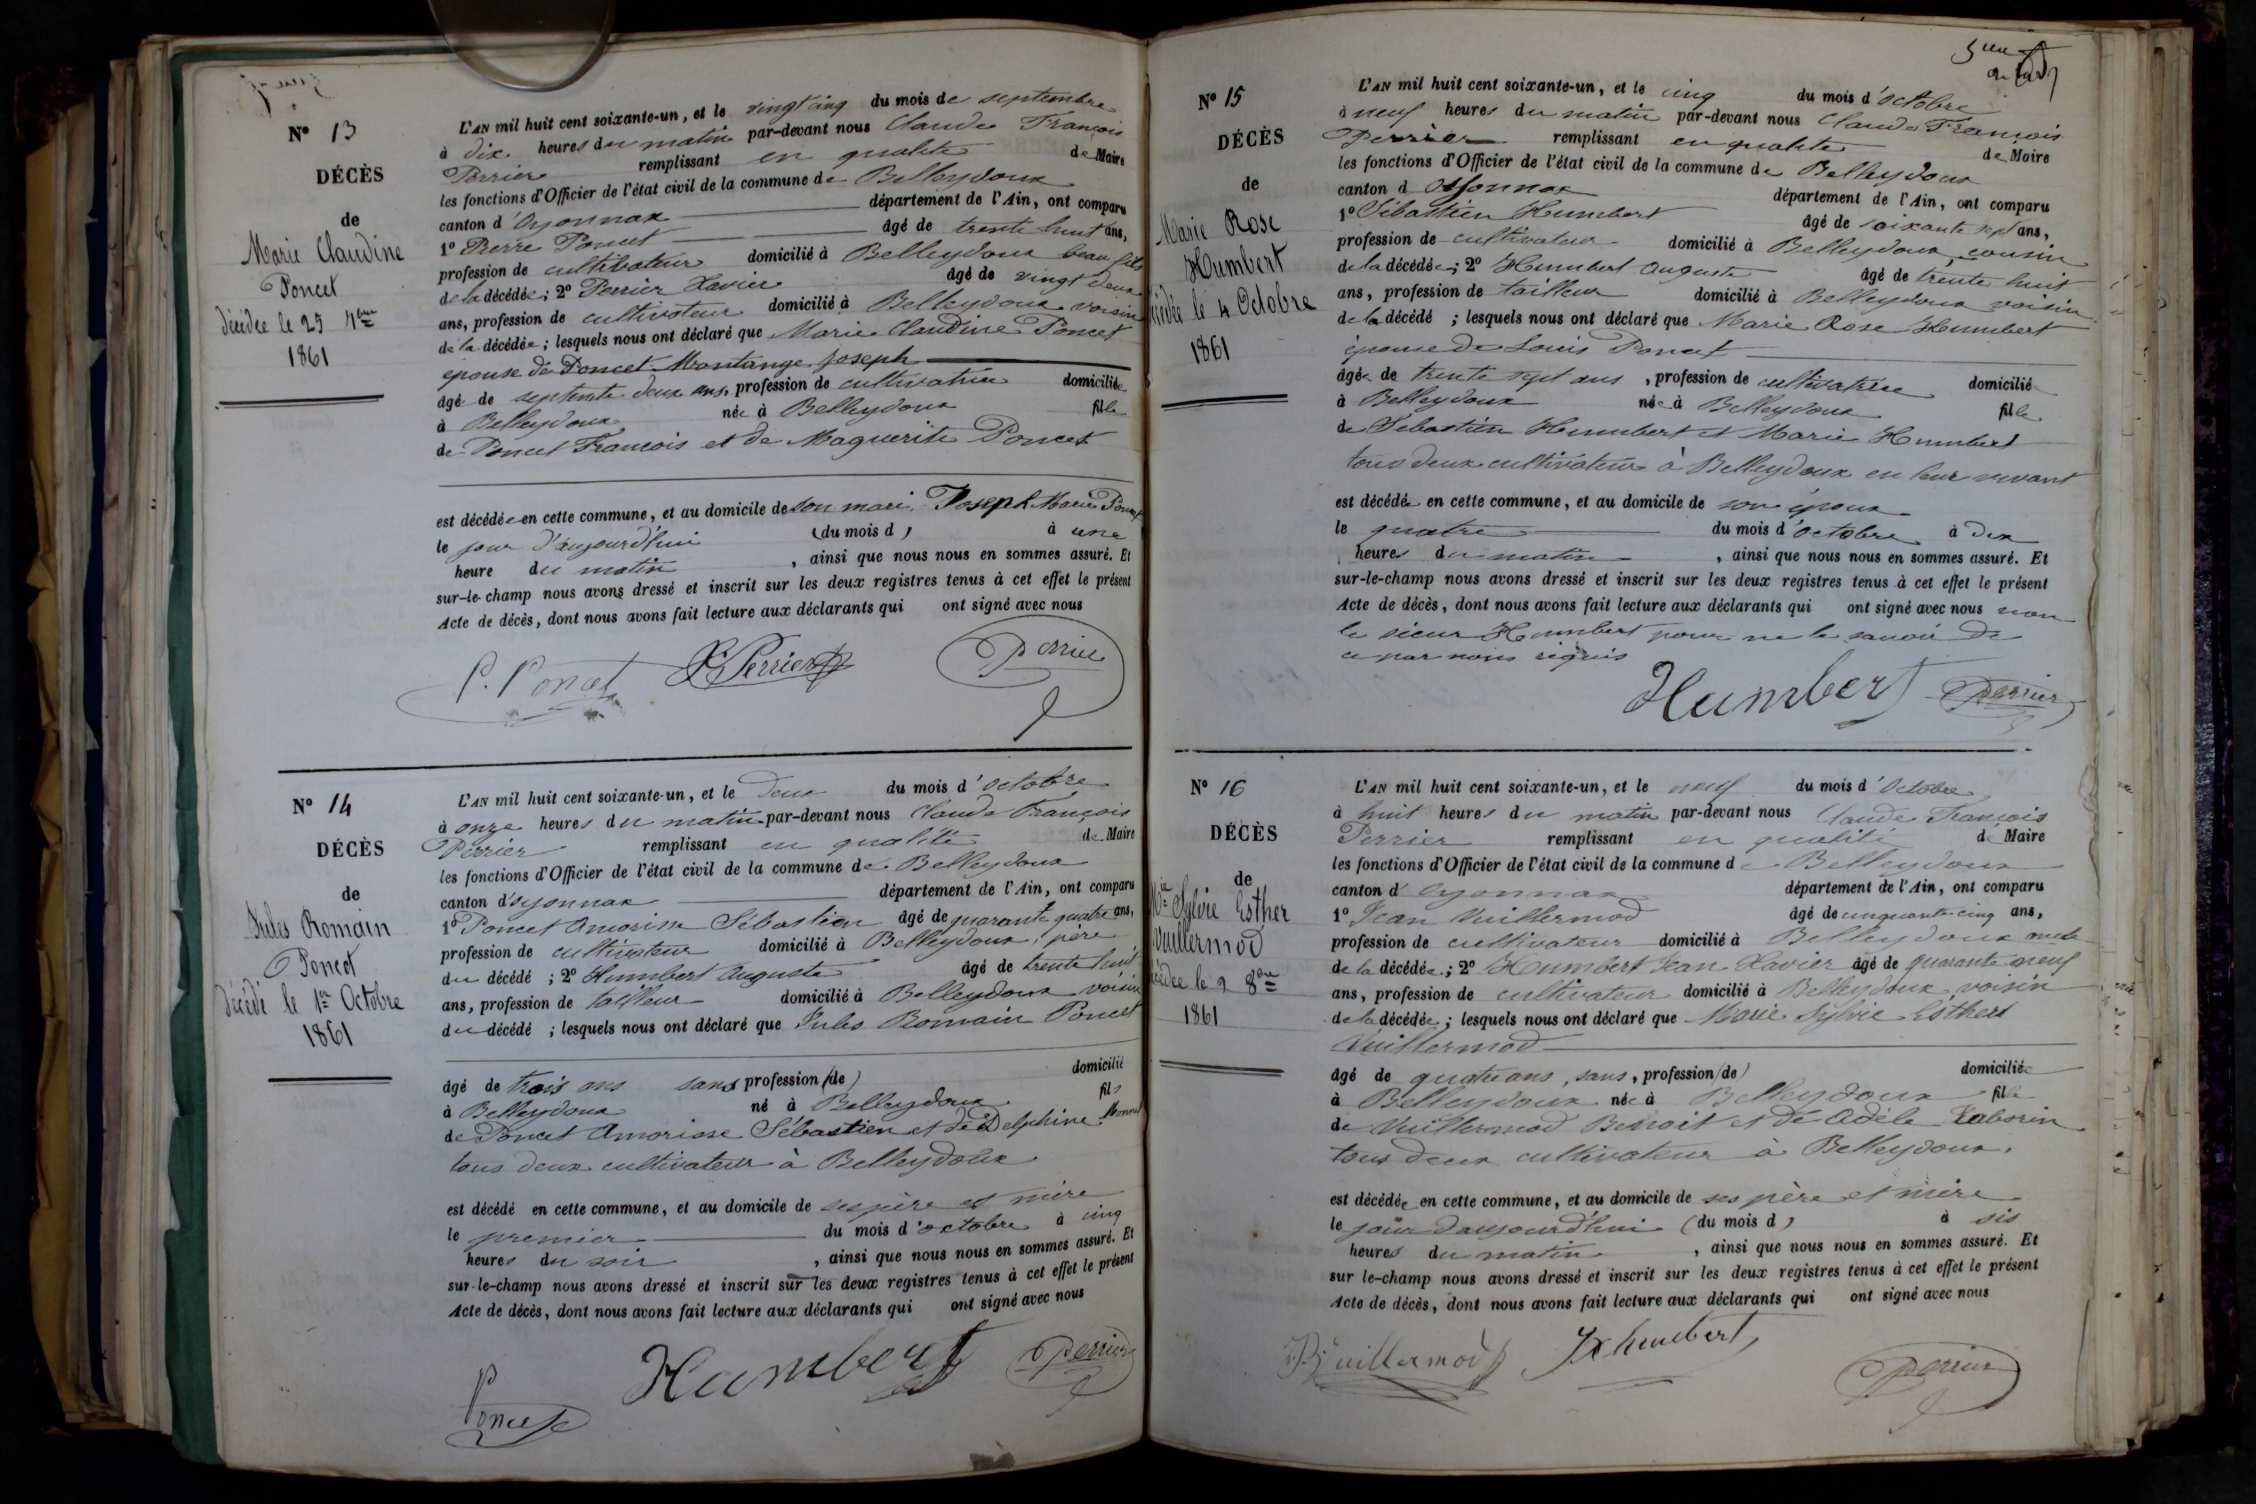 N° 13
DÉCÈS
de
Marie Claudine
Poncet
décédée le 25 7bre
1861
L'AN mil huit cent soixante-un, et le vingt cinq du mois de septembre
à dix heures du matin par-devant nous Claude François
Perrier remplissant en qualité de Maire
les fonctions d'Officier de l'état civil de la commune de Belleydoux
canton d'oyonnax département de l'Ain, ont comparu
1° Pierre Poncet âgé de trente huit ans,
profession de cultivateur domicilié à Belleydoux beau fils
de la décédée; 2° Perrier Xavier âgé de vingt deux
ans, profession de cultivateur domicilié à Belleydoux voisin
de la décédée; lesquels nous ont déclaré que Marie Claudine Poncet
épouse de Poncet Montange Joseph
âgé de septente deux ans, profession de cultivatrice domiciliée
à Belleydoux née à Belleydoux fille
de Poncet François et de Maguerite Poncet
est décédée en cette commune, et au domicile de son mari Joseph Marie Poncet
le jour d'aujourd'hui (du mois d ) à une
heure du matin, ainsi que nous nous en sommes assuré. Et
sur-le-champ nous avons dressé et inscrit sur les deux registres tenus à cet effet le présent
Acte de décès, dont nous avons fait lecture aux déclarants qui ont signé avec nous
P. Poncet X. Perrier Perrier
N° 14
DÉCÈS
de
Jules Romain
Poncet
décédé le 1er Octobre
1861
L'AN mil huit cent soixante-un, et le deux du mois d'octobre
à onze heures du matin par-devant nous Claude François
Perrier remplissant en qualité de Maire
les fonctions d'Officier de l'état civil de la commune de Belleydoux
canton d'oyonnax département de l'Ain, ont comparu
1° Poncet Amorisse Sébastien âgé de quarante quatre ans,
profession de cultivateur domicilié à Belleydoux, père
du décédé; 2° Humbert Auguste âgé de trente huit
ans, profession de tailleur domicilié à Belleydoux voisin
du décédé; lesquels nous ont déclaré que Jules Romain Poncet
âgé de trois ans sans profession (de) domicilié
à Belleydoux né à Belleydoux fils
de Poncet Amorisse Sébastien et de Delphine
tous deux cultivateur à Belleydoux
est décédé en cette commune, et au domicile de ses père et mère
le premier du mois d'octobre à cinq
heures du soir, ainsi que nous nous en sommes assuré. Et
sur-le-champ nous avons dressé et inscrit sur les deux registres tenus à cet effet le présent
Acte de décès, dont nous avons fait lecture aux déclarants qui ont signé avec nous
Poncet Humbert Perrier
N° 15
DÉCÈS
de
Marie Rose
Humbert
décédée le 4 Octobre
1861
L'AN mil huit cent soixante-un, et le cinq du mois d'octobre
à neuf heures du matin par-devant nous Claude François
Perrier remplissant en qualité de Maire
les fonctions d'Officier de l'état civil de la commune de Belleydoux
canton d oyonnax département de l'Ain, ont comparu
1° Sébastien Humbert âgé de soixante sept ans,
profession de cultivateur domicilié à Belleydoux, cousin
de la décédée; 2° Humbert Auguste âgé de trente huit
ans, profession de tailleur domicilié à Belleydoux voisin
de la décédé; lesquels nous ont déclaré que Marie Rose Humbert
épouse de Louis Poncet
âgée de trente sept ans, profession de cultivatrice domicilié
à Belleydoux née à Belleydoux fille
de Sébastien Humbert et Marie Humbert
tous deux cultivateur à Belleydoux en leur vivant
est décédée en cette commune, et au domicile de son époux
le quatre du mois d'octobre à dix
heures du matin, ainsi que nous nous en sommes assuré. Et
sur-le-champ nous avons dressé et inscrit sur les deux registres tenus à cet effet le présent
Acte de décès, dont nous avons fait lecture aux déclarants qui ont signé avec nous non
le sieur Humbert pour ne le savoir de
ce par nous requis
Humbert Perrier
N° 16
DÉCÈS
de
Mie Sylvie Esther
Vuillermod
décédée le 9 8bre
1861
L'AN mil huit cent soixante-un, et le neuf du mois d'Octobre
à huit heures du matin par-devant nous Claude François
Perrier remplissant en qualité de Maire
les fonctions d'Officier de l'état civil de la commune de Belleydoux
canton d'oyonnax département de l'Ain, ont comparu
1° Jean Vuillermod âgé de cinquante cinq ans,
profession de cultivateur domicilié à Belleydoux oncle
de la décédée; 2° Humbert Jean Xavier âgé de quarante neuf
ans, profession de cultivateur domicilié à Belleydoux voisin
de la décédée; lesquels nous ont déclaré que Marie Sylvie Esther
Vuillermod
âgé de quatre ans, sans, profession (de) domiciliée
à Belleydoux née à Belleydoux fille
de Vuillermod Benoit et de Adèle Laborin
tous deux cultivateur à Belleydoux.
est décédée en cette commune, et au domicile de ses père et mère
le jour d'aujourd'hui (du mois d) à sis
heures du matin, ainsi que nous nous en sommes assuré. Et
sur le-champ nous avons dressé et inscrit sur les deux registres tenus à cet effet le présent
Acte de décès, dont nous avons fait lecture aux déclarants qui ont signé avec nous
Vuillermod JX humbert Perrier